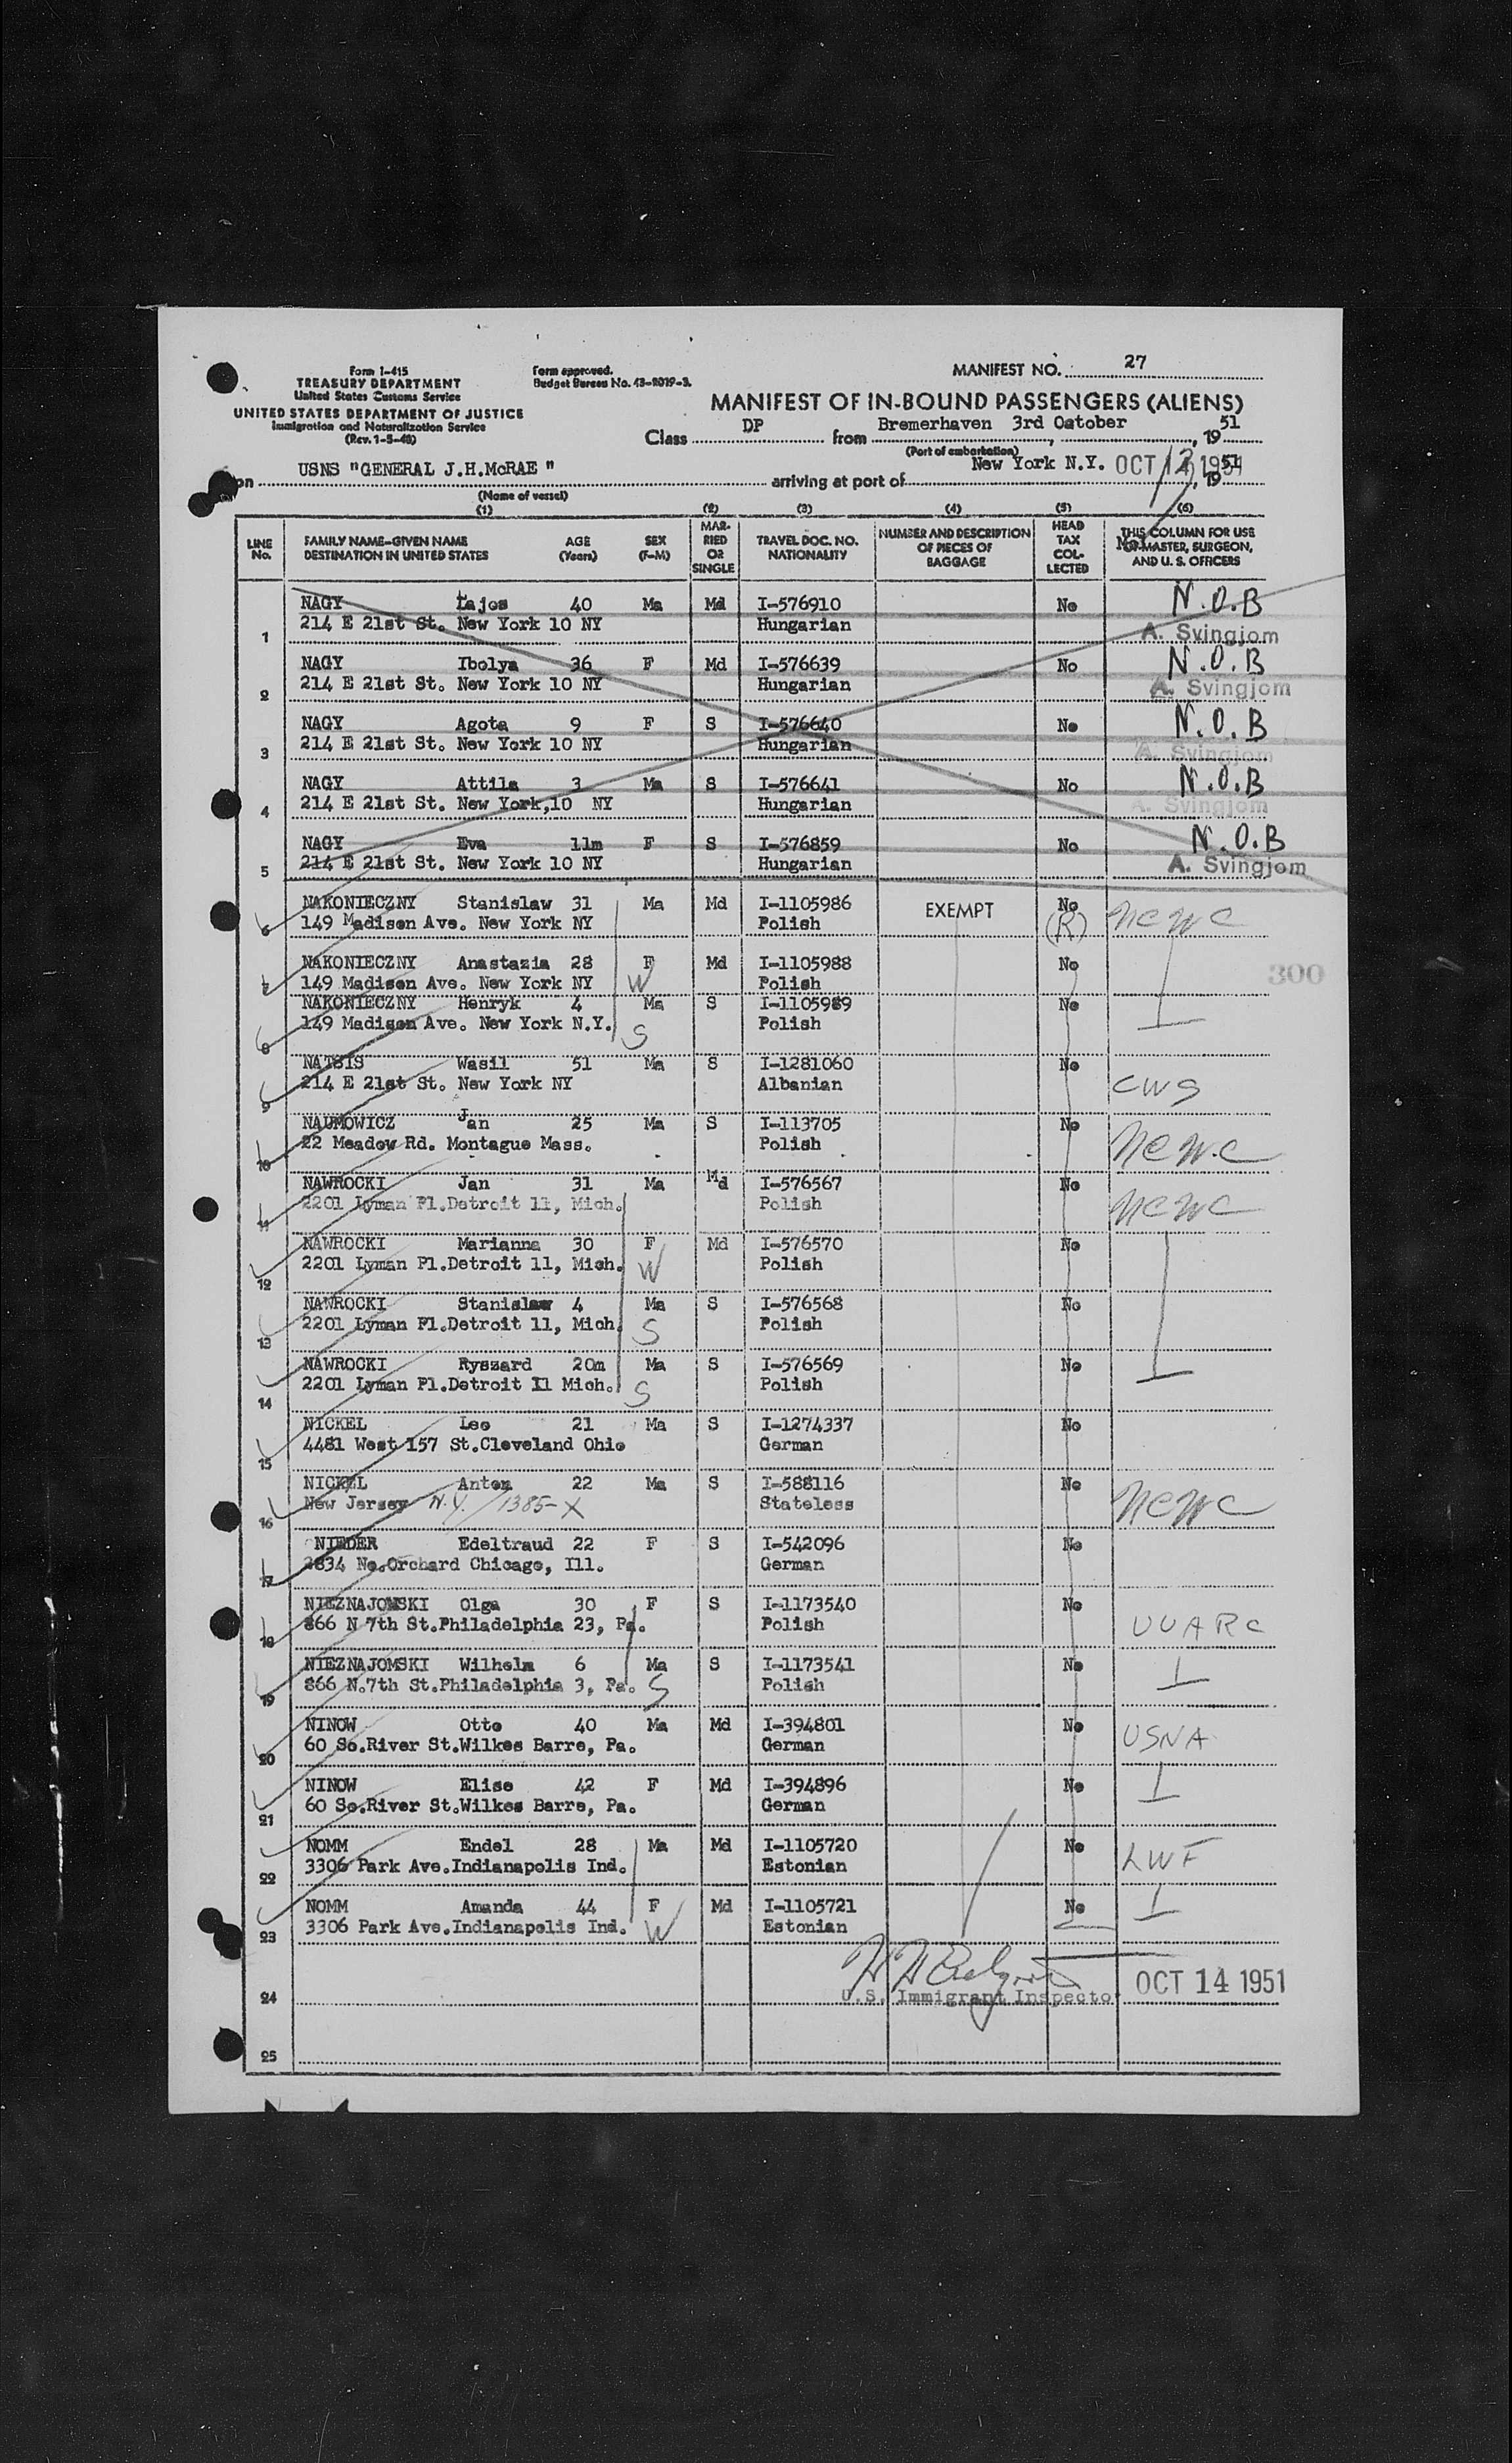 Form I-415
TREASURY DEPARTMENT
United States Customs Service
UNITED STATES DEPARTMENT OF JUSTICE
Immigration and Naturalization Service
(Rev. 1-5-48)
Form approved.
Budget Bureau No. 43-R019-3.
MANIFEST NO. 27
MANIFEST OF IN-BOUND PASSENGERS (ALIENS)
Class DP from Bremerhaven 3rd Oatober, 1951
(Port of embarkation)
on USNS "GENERAL J.H.McRAE " arriving at port of New York N.Y. OCT 1951, 1951
(Name of vessel)
(1) (2) (3) (4) (5) (6)
LINE No. FAMILY NAME-GIVEN NAME DESTINATION IN UNITED STATES AGE (Years) SEX (F-M) MARRIED OR SINGLE TRAVEL DOC. NO. NATIONALITY NUMBER AND DESCRIPTION OF PIECES OF BAGGAGE HEAD TAX COLLECTED THIS COLUMN FOR USE OF MASTER, SURGEON, AND U. S. OFFICERS
NAGY Lajos 40 Ma Md I-576910 No N.O.B
1 214 E 21st St. New York 10 NY Hungarian A. Svingjom
NAGY Ibolya 36 F Md I-576639 No N.O.B
2 214 E 21st St. New York 10 NY Hungarian A. Svingjom
NAGY Agota 9 F S I-576640 No N.O.B
3 214 E 21st St. New York 10 NY Hungarian A. Svingjom
NAGY Attila 3 Ma S I-576641 No N.O.B
4 214 E 21st St. New York,10 NY Hungarian A. Svingjom
NAGY Eva 11m F S I-576859 No N.O.B
5 214 E 21st St. New York 10 NY Hungarian A. Svingjom
NAKONIECZNY Stanislaw 31 Ma Md I-1105986 EXEMPT No
6 149 Madison Ave. New York NY Polish (R) NCWC
NAKONIECZNY Anastazia 28 F Md I-1105988 No 300
7 149 Madison Ave. New York NY W Polish
NAKONIECZNY Henryk 4 Ma S I-1105989 No
8 149 Madison Ave. New York N.Y. S Polish
NATSIS Wasil 51 Ma S I-1281060 No
9 214 E 21st St. New York NY Albanian CWS
NAUMOWICZ Jan 25 Ma S I-113705 No
10 22 Meadow Rd. Montague Mass. Polish NCWC
NAWROCKI Jan 31 Ma Md I-576567 No
11 2201 Lyman Pl.Detroit 11, Mich. Polish NCWC
NAWROCKI Marianna 30 F Md I-576570 No
12 2201 Lyman Pl.Detroit 11, Mich. W Polish
NAWROCKI Stanislaw 4 Ma S I-576568 No
13 2201 Lyman Pl.Detroit 11, Mich. S Polish
NAWROCKI Ryszard 20m Ma S I-576569 No
14 2201 Lyman Pl.Detroit 11 Mich. S Polish
NICKEL Leo 21 Ma S I-1274337 No
15 4481 West 157 St.Cleveland Ohio German
NICKEL Anton 22 Ma S I-588116 No
16 New Jersey N.Y. / 1385-X Stateless NCWC
NIEDER Edeltraud 22 F S I-542096 No
17 2834 No.Orchard Chicago, Ill. German
NIEZNAJOMSKI Olga 30 F S I-1173540 No
18 866 N 7th St.Philadelphia 23, Pa. Polish UUARC
NIEZNAJOMSKI Wilhelm 6 Ma S I-1173541 No
19 866 N.7th St.Philadelphia 3, Pa. S Polish
NINOW Otto 40 Ma Md I-394801 No
20 60 So.River St.Wilkes Barre, Pa. German USNA
NINOW Elise 42 F Md I-394896 No
21 60 So.River St.Wilkes Barre, Pa. German
NOMM Endel 28 Ma Md I-1105720 No
22 3306 Park Ave.Indianapolis Ind. Estonian LWF
NOMM Amanda 44 F Md I-1105721 No
23 3306 Park Ave.Indianapolis Ind. W Estonian
24 U.S. Immigrant Inspector OCT 14 1951
25